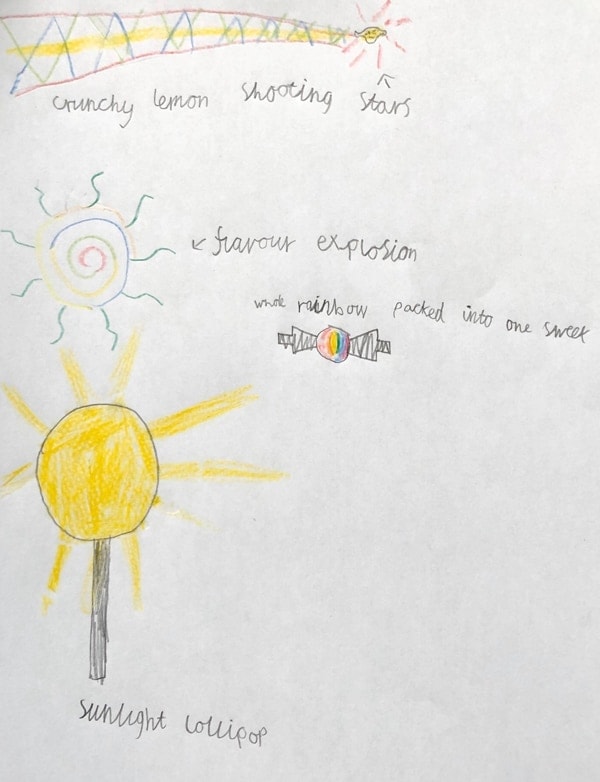 crunchy lemon shooting stars
flavour explosion
whole rainbow packed into one sweet
sunlight lollipop